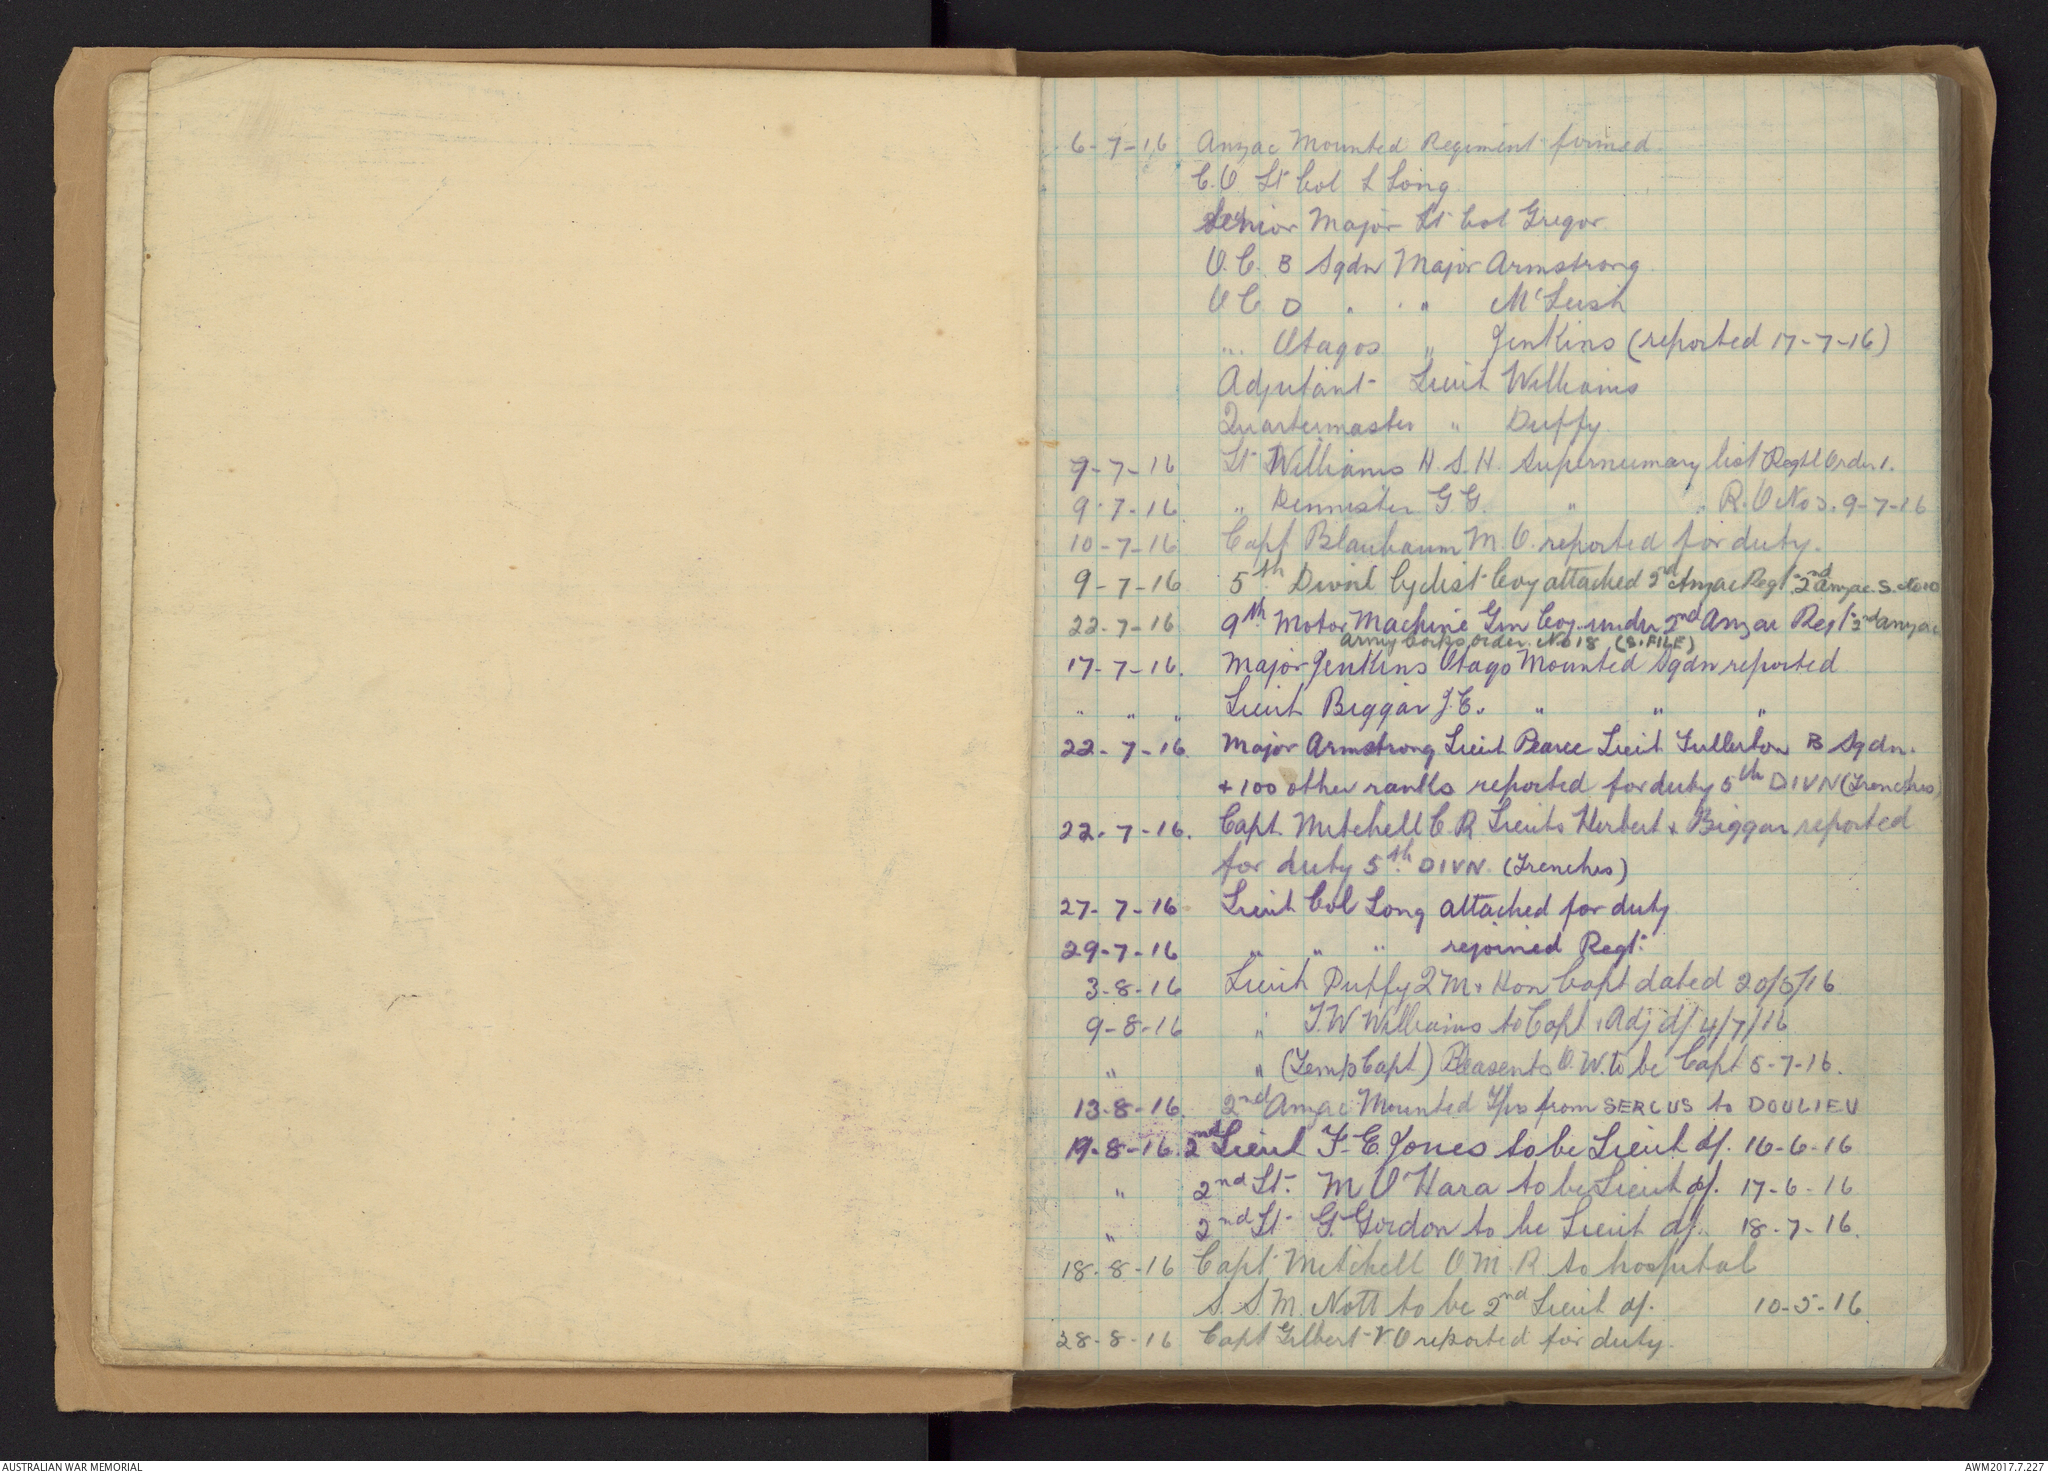 6-7-16 Anzac Mounted Regiment formed.
C.O Lt Col L Long
Senior Major Lt Col Gregor
O.C. B Sqdn Major Armstrong
O C D " " " McLeish
" " Otagos " Jenkins (reported 17-7-16)
Adjutant Lieut Williams
Quartermaster " Duffy.
9-7-16 Lt Williams H.S.H. Supernumary list Regtl Order 1.
9-7-16 " G G. " " R.O No 3. 9-7-16
10-7-16 Capt Blaubaum M.O. reported for duty.
9-7-16 5th Divnl Cyclist Coy attached 2nd Anzac Regt. 2nd Anzac S. No 10
22-7-16 9th Motor Machine Gun Coy under 2nd Anzac Regt 2nd Anzac
Army Corps Order No 18 (S. FILE)
17-7-16. Major Jenkins Otago Mounted Sqdn reported
" " " Lieut Biggar J.C. " " "
22-7-16. Major Armstrong Lieut Pearce Lieut Fullerton B Sqdn.
+ 100 other ranks reported for duty 5th DIVN (Trenches)
22-7-16. Capt. Mitchell C R Lieuts Herbert & Biggar reported
for duty 5th DIVN. (Trenches)
27-7-16 Lieut Col Long attached for duty
29-7-16 " " " rejoined Regt.
3-8-16 Lieut Duffy Q M & Hon Capt dated 20/5/16
9-8-16 " T.W Williams to Capt & Adj d/ 4/7/16
" " (Temp Capt) Pleasents O.W. to be Capt 5-7-16.
13-8-16. 2nd Anzac Mounted from SERCUS to DOULIEU
19-8-16. 2nd Lieut F. E. Jones to be Lieut d/. 16-6-16
" 2nd Lt. M O'Hara to be Lieut d/. 17-6-16
" 2nd Lt G. Gordon to be Lieut d/. 18-7-16.
18-8-16 Capt Mitchell O.M.R. to hospital
S.S.M. Nott to be 2nd Lieut d/. 10-5-16.
28-8-16 Capt Gilbert V O reported for duty.
AUSTRALIAN WAR MEMORIAL
AWM2017.7.227